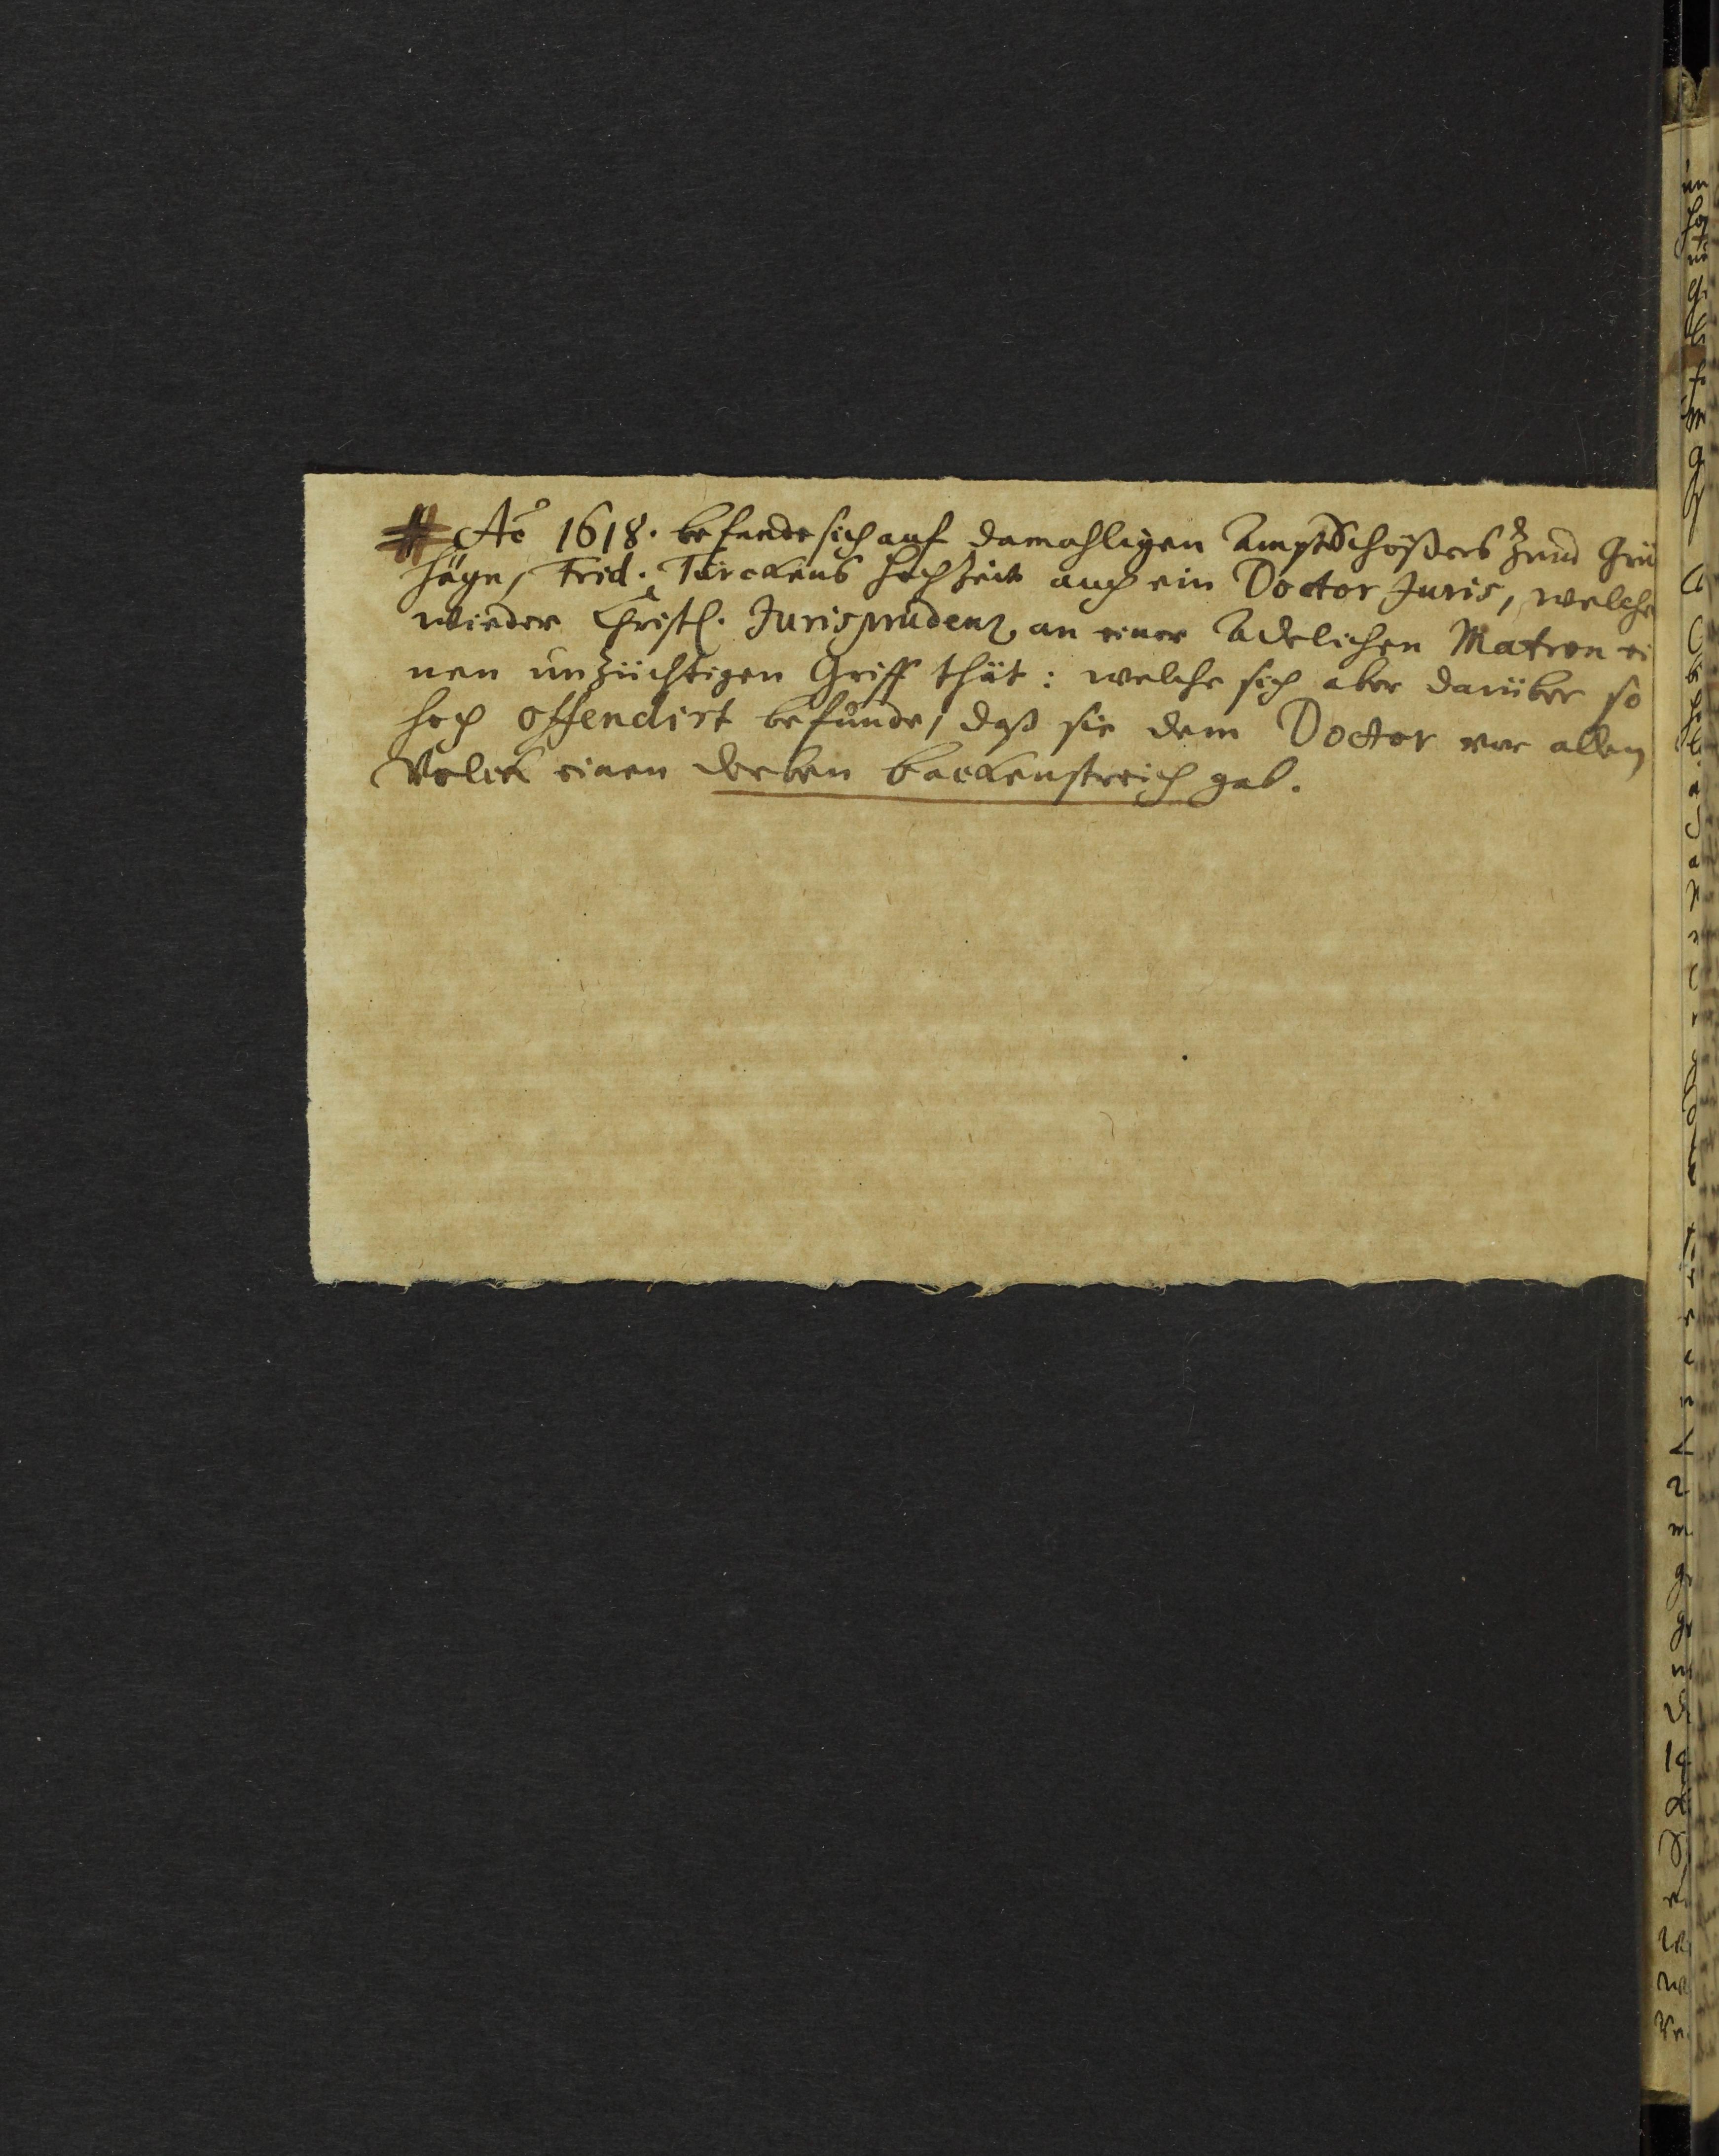 # Aō 1618. befande sich auf damahligen AmptsSchößers zum Grü
häyn, Frid. Türckens Hochzeit auch ein Doctor Juris, welche
wieder Christl. Jurisprudenz an einer Adelichen Matron ei
nen unzüchtigen Griff thät: welche sich aber darüber so
hoch offendirt befunde, daß sie dem Doctor vor allem
Volck einen derben backenstreich gab.